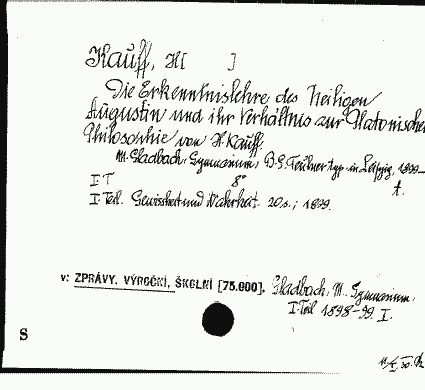 Kauff, H[ ]
Die Erkenntnislehre des Heiligen
Augustin und ihr Verhältnis zur Platonischen
Philosophie von H. Kauff.
M. Gladbach, Gymnasium, B. G. Teubner typ. in Leipzig, 1899-
I T 8° t.
I Teil. Gewissheit und Wahrheit. 20 s.; 1899.
v: ZPRÁVY, VÝROČNÍ, ŠKOLNÍ [75.000]. Gladbach, M. Gymnasium.
I Teil 1898-99. I.
S